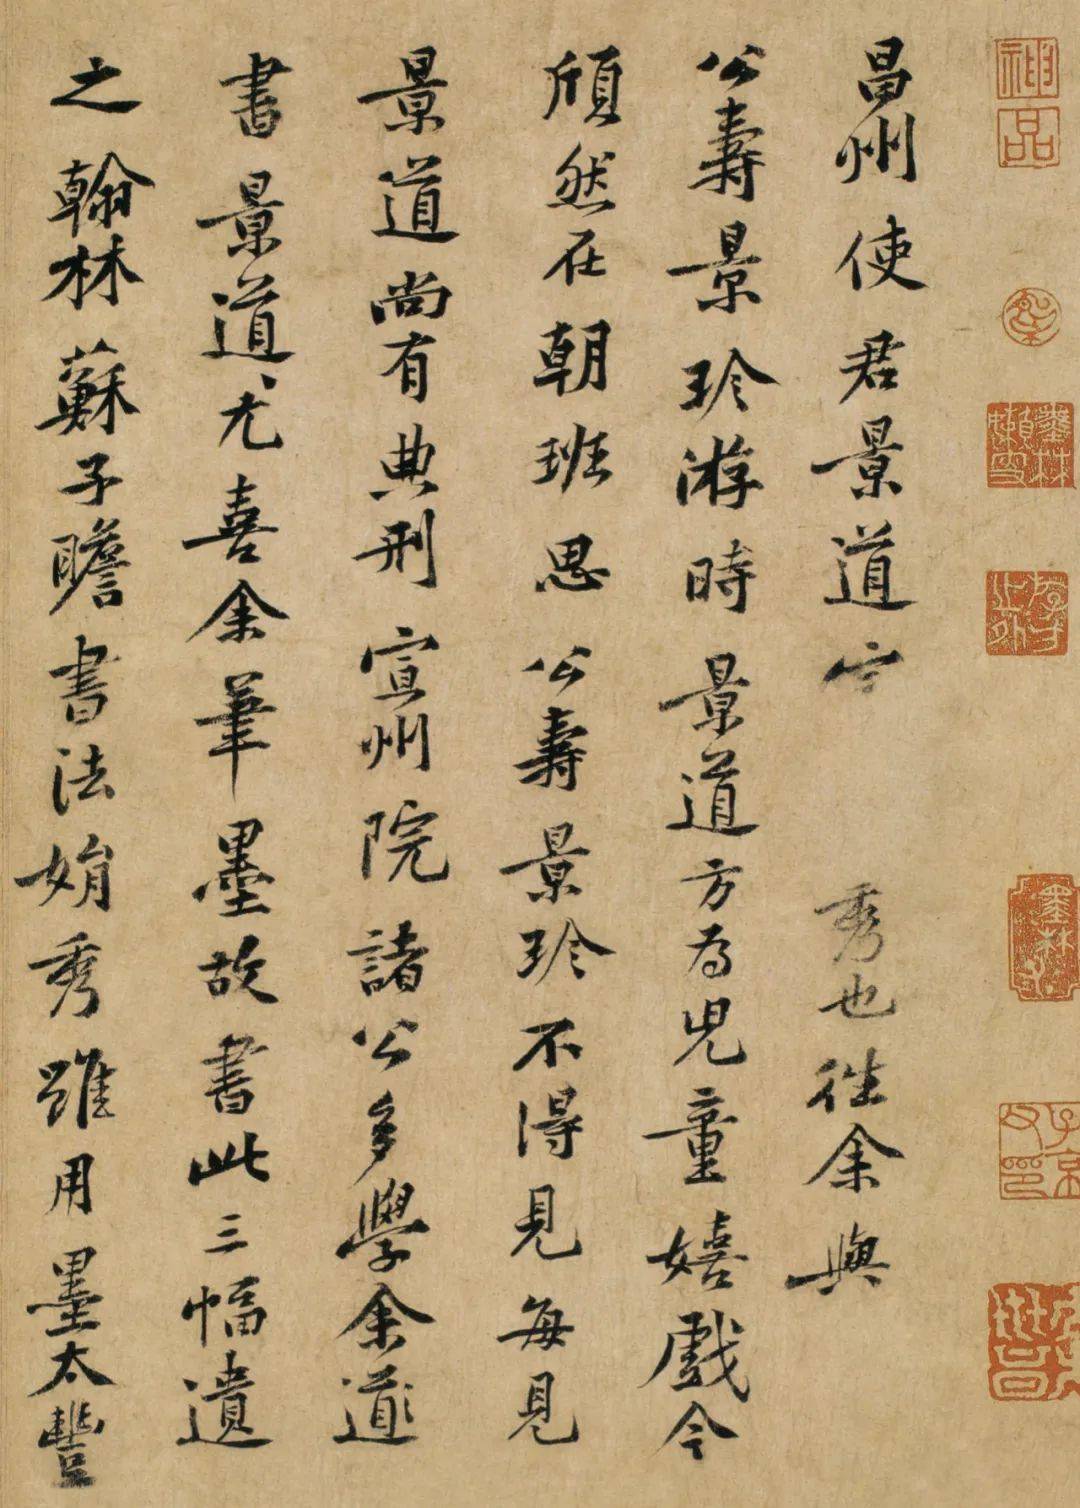 神品
墨林嬾叟
子京父印
昌州使君景道 秀也往余與
公壽景珍游時景道方為兒童嬉戲今
頎然在朝班思公壽景珍不得見每見
景道尚有典刑宣州院諸公多學余道
書景道尤喜余筆墨故書此三幅遺
之翰林蘇子瞻書法娟秀雖用墨太豐